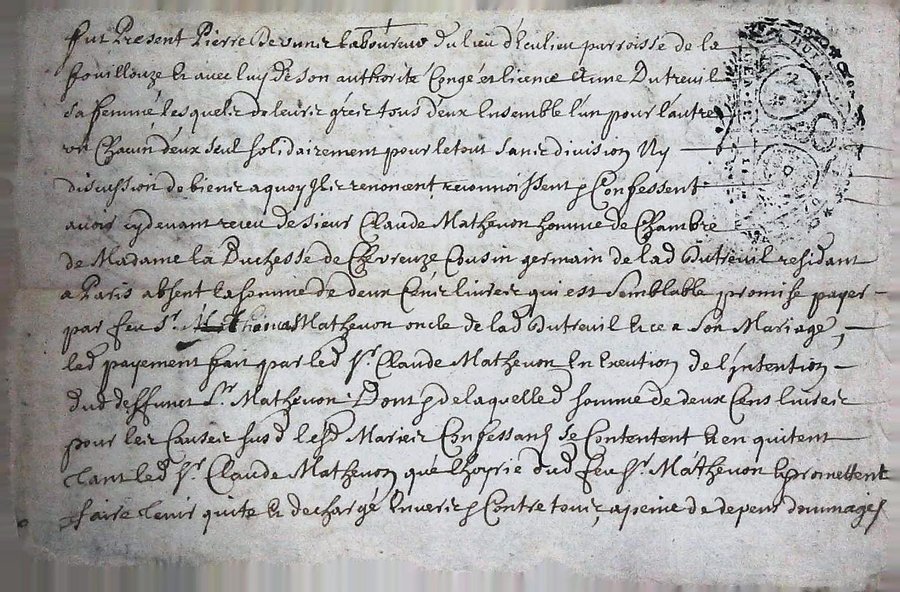 fut Present Pierre Desunir laboureur du lieu d'éculieu parroisse de la
fouillouze et avec luy de son authorité Congé et licence Anne Dutreuil
sa femme lesquels de leurs gréz tous deux Ensemble l'un pour l'autre
un Chacun d'eux seul solidairement pour le tout sans division Ny
discussion de biens a quoy Ils renoncent, reconnoissent & Confessent
avoir cy devant receu de sieur Claude Mathevon homme de Chambre
de Madame La Duchesse de Chevreuze Cousin germain de lad Dutreuil residant
a Paris absent la somme de deux Cens livres qui est semblable promise payer
par feu Sr. Thomas Mathevon oncle de lad Dutreuil et ce a son Mariage,
led payement fait par led Sr. Claude Mathevon En Execution de l'intention
dud deffunct Sr. Mathevon. Dont & de laquelle d somme de deux Cens livres
pour les Causes susd lesd Mariés Confessans se Contentent et en quitent
tant led Sr. Claude Mathevon que l'hoyrie dud feu Sr. Mathevon et promettent
faire tenir quite et dechargé Envers & Contre tous, a peine de depens dommages